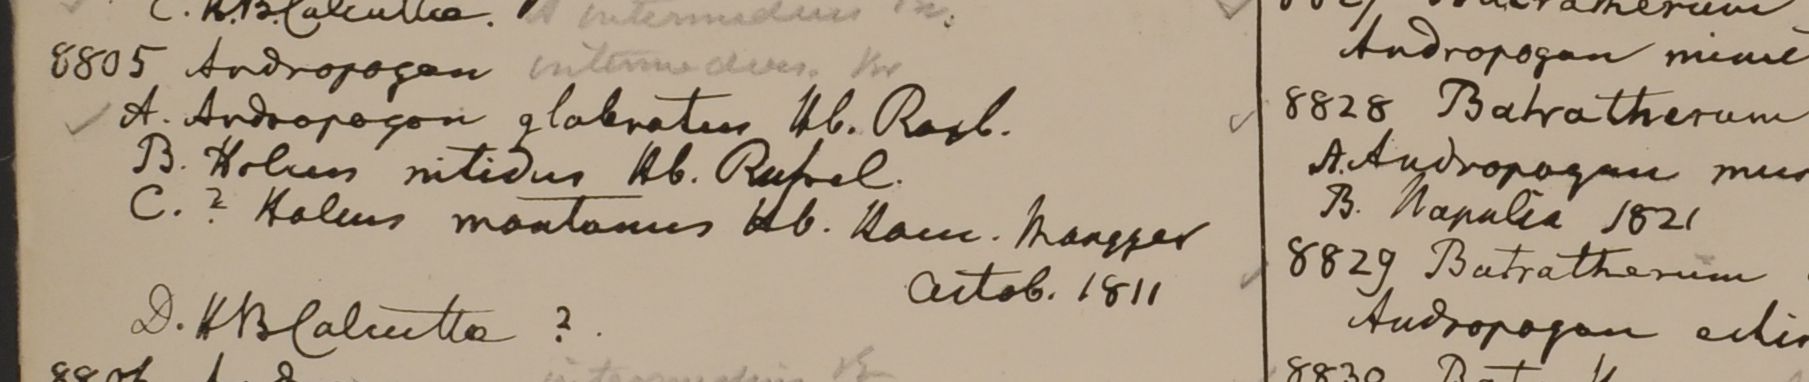 C. H.B. Calcutta. A intermedius
8805 Andropogon intermedius. Br
A. Andropogon glabratus Hb. Roxb.
B. Holcus nitidus Hb. Russel.
C. ? Holcus montanus Hb. Ham. Mangger
Octob. 1811
D. HB Calcutta ?
Andropogon
8828 Batratherum
A. Andropogon
B. Napalia 1821
8829 Batratherum
Andropogon
8830